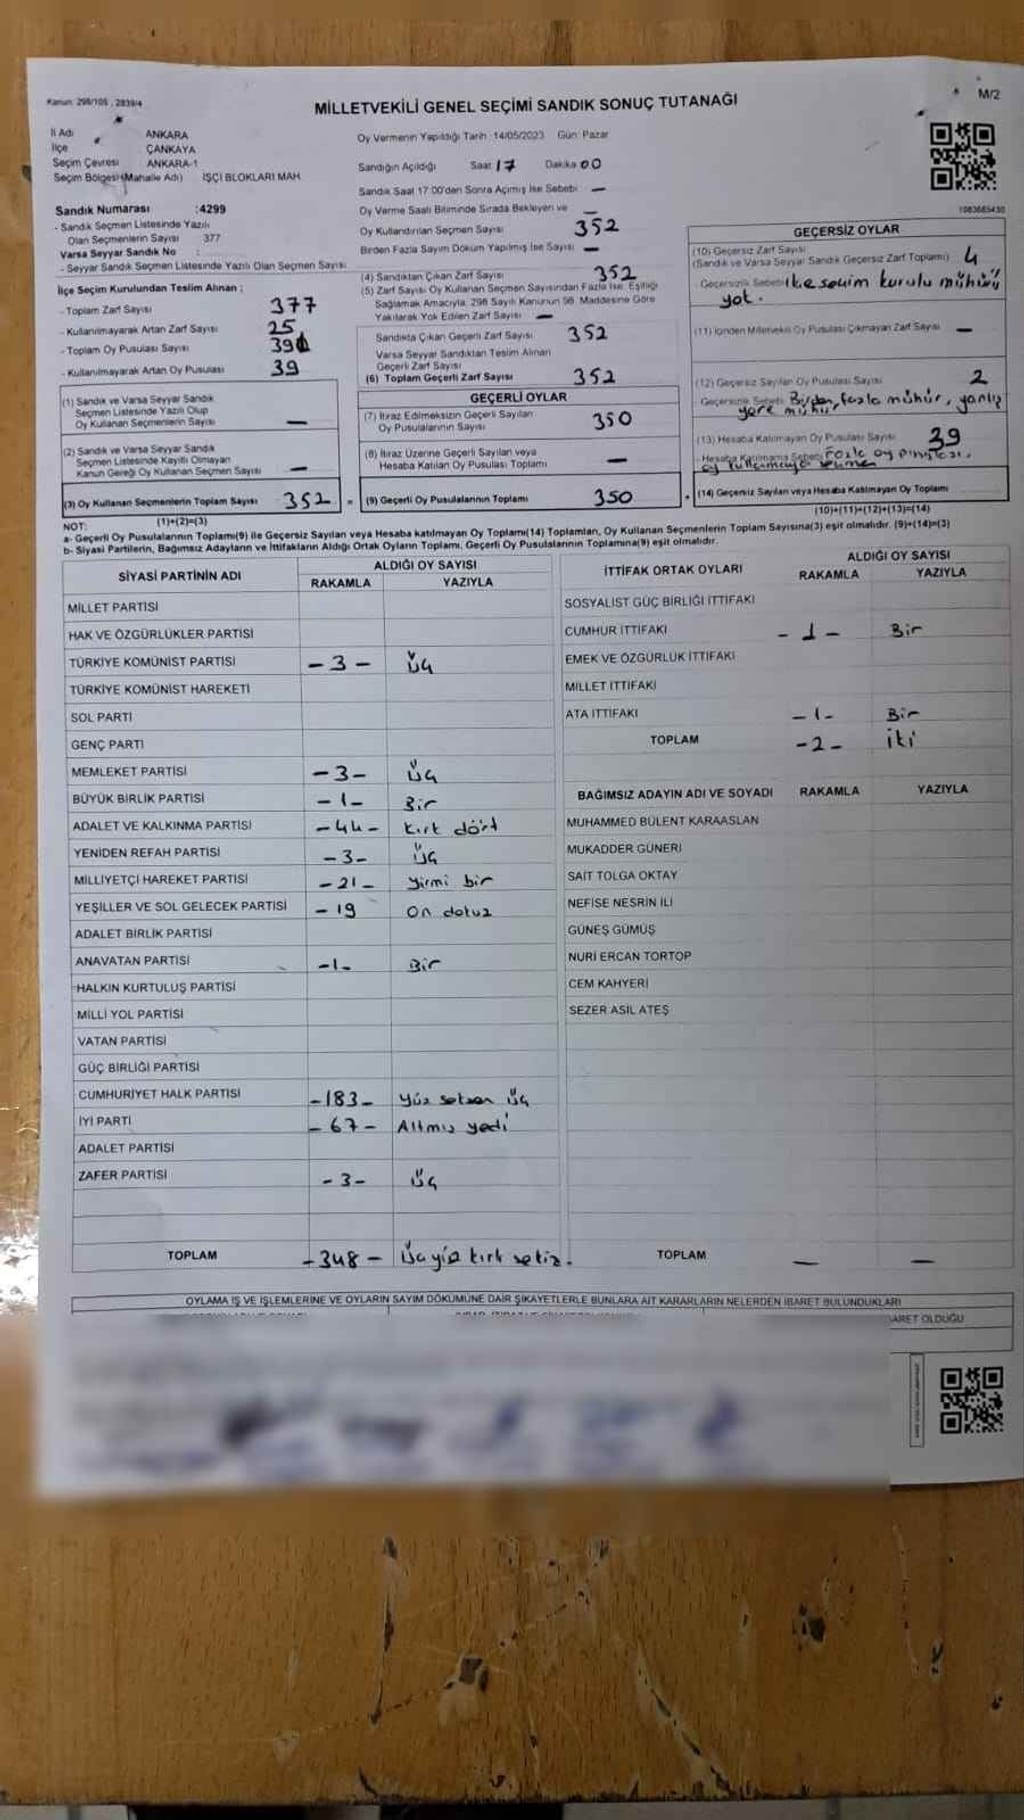 Kanun: 298/105 , 2839/4
M/2
MİLLETVEKİLİ GENEL SEÇİMİ SANDIK SONUÇ TUTANAĞI
İl Adı ANKARA
İlçe ÇANKAYA
Seçim Çevresi ANKARA-1
Seçim Bölgesi (Mahalle Adı) İŞÇİ BLOKLARI MAH.
Sandık Numarası :4299
- Sandık Seçmen Listesinde Yazılı
Olan Seçmenlerin Sayısı 377
Varsa Seyyar Sandık No :
- Seyyar Sandık Seçmen Listesinde Yazılı Olan Seçmen Sayısı
İlçe Seçim Kurulundan Teslim Alınan ;
- Toplam Zarf Sayısı 377
- Kullanılmayarak Artan Zarf Sayısı 25
- Toplam Oy Pusulası Sayısı
- Kullanılmayarak Artan Oy Pusulası 39
(1) Sandık ve Varsa Seyyar Sandık
Seçmen Listesinde Yazılı Olup
Oy Kullanan Seçmenlerin Sayısı —
(2) Sandık ve Varsa Seyyar Sandık
Seçmen Listesinde Kayıtlı Olmayan
Kanun Gereği Oy Kullanan Seçmen Sayısı —
(3) Oy Kullanan Seçmenlerin Toplam Sayısı 352 =
(1)+(2)=(3)
Oy Vermenin Yapıldığı Tarih :14/05/2023 Gün: Pazar
Sandığın Açıldığı Saat: 17 Dakika 00
Sandık Saat 17:00'den Sonra Açılmış İse Sebebi —
Oy Verme Saati Bitiminde Sırada Bekleyen ve —
Oy Kullandırılan Seçmen Sayısı 352
Birden Fazla Sayım Döküm Yapılmış İse Sayısı —
(4) Sandıktan Çıkan Zarf Sayısı 352
(5) Zarf Sayısı Oy Kullanan Seçmen Sayısından Fazla İse; Eşitliği
Sağlamak Amacıyla; 298 Sayılı Kanunun 98. Maddesine Göre
Yakılarak Yok Edilen Zarf Sayısı —
Sandıkta Çıkan Geçerli Zarf Sayısı 352
Varsa Seyyar Sandıktan Teslim Alınan
Geçerli Zarf Sayısı
(6) Toplam Geçerli Zarf Sayısı 352
GEÇERLİ OYLAR
(7) İtiraz Edilmeksizin Geçerli Sayılan
Oy Pusulalarının Sayısı 350
(8) İtiraz Üzerine Geçerli Sayılan veya
Hesaba Katılan Oy Pusulası Toplamı —
(9) Geçerli Oy Pusulalarının Toplamı 350
1983685430
GEÇERSİZ OYLAR
(10) Geçersiz Zarf Sayısı
(Sandık ve Varsa Seyyar Sandık Geçersiz Zarf Toplamı) 4
Geçersizlik Sebebi seçim kurulu mühürü
yok.
(11) İçinden Milletvekili Oy Pusulası Çıkmayan Zarf Sayısı —
(12) Geçersiz Sayılan Oy Pusulası Sayısı 2
Geçersizlik Sebebi Birden fazla mühür, yanlış
yere mühür
(13) Hesaba Katılmayan Oy Pusulası Sayısı 39
Hesaba Katılmama Sebebi Fazla oy pusulası.
oy seçmen
(14) Geçersiz Sayılan veya Hesaba Katılmayan Oy Toplamı
(10)+(11)+(12)+(13)=(14)
NOT:
a- Geçerli Oy Pusulalarının Toplamı(9) ile Geçersiz Sayılan veya Hesaba katılmayan Oy Toplamı(14) Toplamları, Oy Kullanan Seçmenlerin Toplam Sayısına(3) eşit olmalıdır. (9)+(14)=(3)
b- Siyasi Partilerin, Bağımsız Adayların ve İttifakların Aldığı Ortak Oyların Toplamı, Geçerli Oy Pusulalarının Toplamına(9) eşit olmalıdır.
SİYASİ PARTİNİN ADI ALDIĞI OY SAYISI
RAKAMLA YAZIYLA
MİLLET PARTİSİ
HAK VE ÖZGÜRLÜKLER PARTİSİ
TÜRKİYE KOMÜNİST PARTİSİ -3- Üç
TÜRKİYE KOMÜNİST HAREKETİ
SOL PARTİ
GENÇ PARTİ
MEMLEKET PARTİSİ -3- Üç
BÜYÜK BİRLİK PARTİSİ -1- Bir
ADALET VE KALKINMA PARTİSİ -44- Kırk dört
YENİDEN REFAH PARTİSİ -3- Üç
MİLLİYETÇİ HAREKET PARTİSİ -21- Yirmi bir
YEŞİLLER VE SOL GELECEK PARTİSİ -19 On dokuz
ADALET BİRLİK PARTİSİ
ANAVATAN PARTİSİ -1- Bir
HALKIN KURTULUŞ PARTİSİ
MİLLİ YOL PARTİSİ
VATAN PARTİSİ
GÜÇ BİRLİĞİ PARTİSİ
CUMHURİYET HALK PARTİSİ -183- Yüz seksen üç
İYİ PARTİ -67- Altmış yedi
ADALET PARTİSİ
ZAFER PARTİSİ -3- Üç
TOPLAM -348- Üçyüz kırk sekiz.
İTTİFAK ORTAK OYLARI ALDIĞI OY SAYISI
RAKAMLA YAZIYLA
SOSYALİST GÜÇ BİRLİĞİ İTTİFAKI
CUMHUR İTTİFAKI -1- Bir
EMEK VE ÖZGÜRLÜK İTTİFAKI
MİLLET İTTİFAKI
ATA İTTİFAKI -1- Bir
TOPLAM -2- iki
BAĞIMSIZ ADAYIN ADI VE SOYADI RAKAMLA YAZIYLA
MUHAMMED BÜLENT KARAASLAN
MUKADDER GÜNERİ
SAİT TOLGA OKTAY
NEFİSE NESRİN İLİ
GÜNEŞ GÜMÜŞ
NURİ ERCAN TORTOP
CEM KAHYERİ
SEZER ASİL ATEŞ
TOPLAM — —
OYLAMA İŞ VE İŞLEMLERİNE VE OYLARIN SAYIM DÖKÜMÜNE DAİR ŞİKAYETLERLE BUNLARA AİT KARARLARIN NELERDEN İBARET BULUNDUKLARI
BARET OLDUĞU